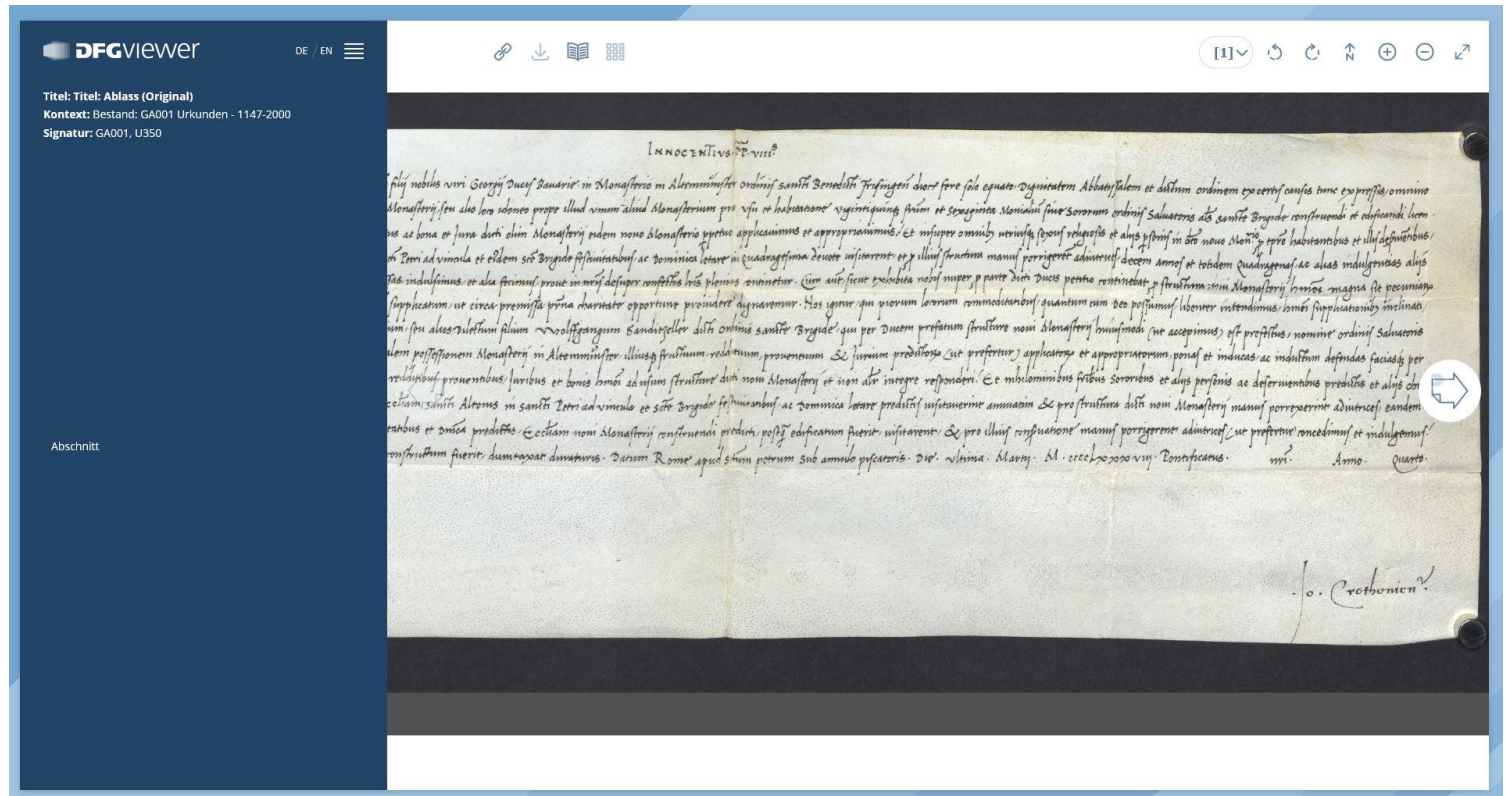 DFGVIEWER
DE / EN
[1]
N
Titel: Titel: Ablass (Original)
Kontext: Bestand: GA001 Urkunden - 1147-2000
Signatur: GA001, U350
Abschnitt
INNOCENTIVS PP VIII
filij nobilis viri Georgij Ducis Bauarie in Monasterio in Altemmünster ordinis sancti Benedicti Frisingen dioc fere solo equato Dignitatem Abbatissalem et dictum ordinem ex certis causis tunc expressis omnino
Monasterij seu alio loco idoneo prope illud vnum aliud Monasterium pro vsu et habitatione vigintiquinq frūm et sexaginta Monialiū siue Sororum ordinis Saluatoris als sancte Brigide construendi et edificandi licen
ac bona et Jura dicti olim Monasterij eidem nouo Monasterio ppetuo applicauimus et appropriauimus. Et insuper omnibz vtriusq sexus religiosis et alijs psonis in dco nouo habitantibus et illi
Petri ad vincula et eisdem scē Brigide festiuitatibus ac Dominica letare in quadragesima deuote uisitarent et p illius structura manus porrigeret adiutrices decem annos et totidem quadragenas ac alias indulgentias alijs
indulsimus et alia fecimus prout in nris desuper confectis lris plenius continetur. Cum aut sicut exhibita nobis nuper p parte dicti Ducis petitio continebat p structura noui Monasterij hmoi magna sit pecuniarū
supplicatum ut circa premissa prna charitate oportune prouidere dignaremur. Nos igitur qui piorum locorum commoditatibus quantum cum Deo possumus libenter intendimus hmoi supplicationibz inclinati
seu alios Dilectum filium Woolffgangum Sandizeller dicti ordinis sancte Brigide qui per Ducem prefatum structure noui Monasterij huiusmodi (ut accepimus) est prefectus, nomine ordinis Saluatoris
possessionem Monasterij in Altemmünster illiusq fructuum reddituum, prouentuum & Jurium predictorū (ut prefertur) applicatorū et appropriatorum, ponas et inducas ac inductum defendas faciasq per
redditibus prouentibus Juribus et bonis hmoi ad usum structure dicti noui Monasterij et non alr integre responderi. Et nihilominus fribus sororibus et alijs personis ac deseruientibus predictis et alijs
sancti Altonis in sancti Petri ad vincula et scte Brigide festiuitatibus ac Dominica letare predictis uisitauerint annuatim & pro structura dicti noui Monasterij manus porrexerint adiutrices, eandem
et dnica predictis Eccliam noui Monasterij construendi predicti, postq edificatum fuerit, uisitarent, & pro illius conseruatione manus porrigerent adiutrices, ut prefertur concedimus et indulgemus.
constructum fuerit, dumtaxat duraturis. Datum Rome apud sctum petrum Sub annulo piscatoris. Die vltima. Martij. M. cccclxxxviij. Pontificatus. nri. Anno. Quarto.
Jo. Crothonien